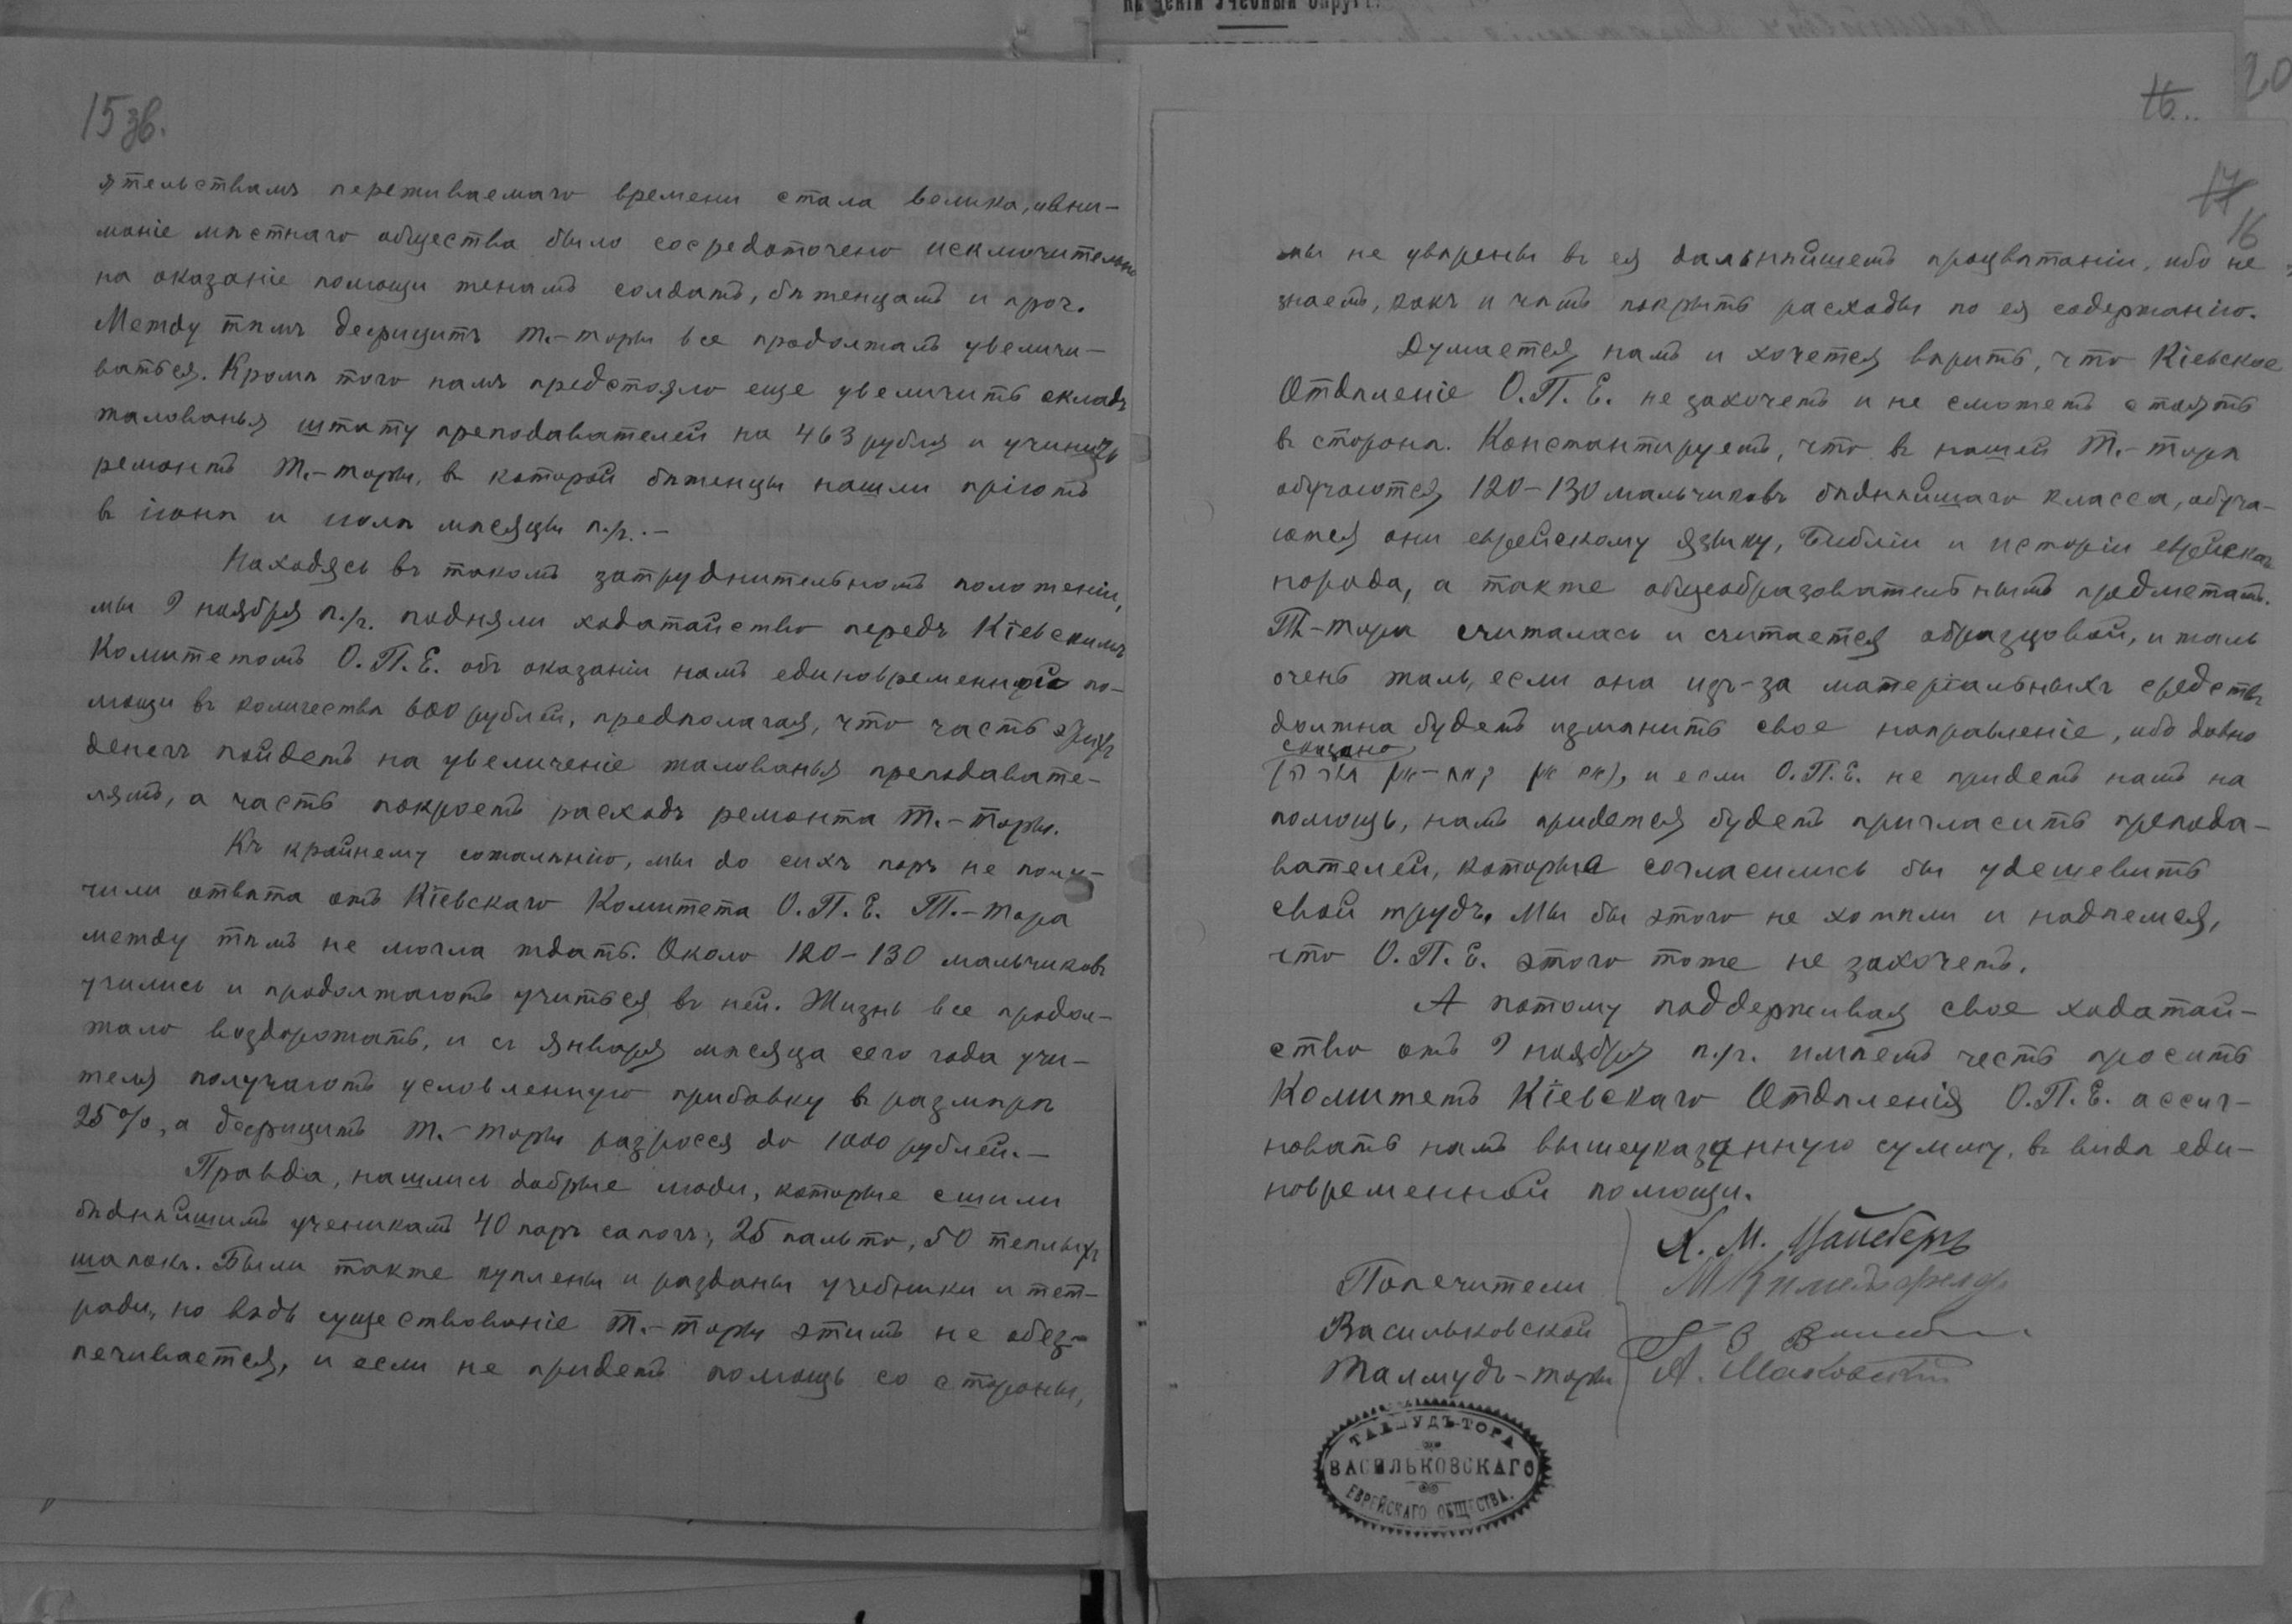 15 зв.
ятельствамъ переживаемаго времени стала велика, и вни-
маніе мѣстнаго общества было сосредоточено исключительно
на оказаніе помощи женамъ солдатъ, бѣженцамъ и проч.
Между тѣмъ дефицитъ Т.-торы все продолжалъ увеличи-
ваться. Кромѣ того намъ предстояло еще увеличить окладъ
жалованья штату преподавателей на 463 рубля и учинить
ремонтъ Т.-торы, въ которой бѣженцы нашли пріютъ
в іюнѣ и іюлѣ мѣсяцы п.г.-
Находясь въ такомъ затруднительномъ положеніи,
мы 9 ноября п.г. подняли ходатайство передъ Кіевскимъ
Комитетомъ О.П.Е. объ оказаніи намъ единовременной по-
мощи въ количествѣ 600 рублей, предполагая, что часть этихъ
денегъ пойдетъ на увеличеніе жалованья преподавате-
лямъ, а часть покроетъ расходъ ремонта Т.-Торы.
Къ крайнему сожалѣнію, мы до сихъ поръ не полу-
чили отвѣта отъ Кіевскаго Комитета О.П.Е. Т.-тора
между тѣмъ не могла ждать. Около 120-130 мальчиковъ
учились и продолжаютъ учиться въ ней. Жизнь все продол-
жало вздорожать, и съ января мѣсяца сего года учи-
теля получаютъ условленную прибавку в размѣрѣ
25%, а дефицитъ Т.-торы разросся до 1000 рублей.-
Правда, нашлись добрые люди, которые сшили
бѣднѣйшимъ ученикамъ 40 паръ сапогъ, 25 пальто, 50 теплыхъ
шапокъ. Были также куплены и розданы учебники и тет-
ради, но вѣдь существованіе Т.-торы этимъ не обез-
печивается, и если не придетъ помощь со стороны,
16
17
16
20
мы не увѣрены въ ея дальнѣйшемъ процвѣтаніи, ибо не
знаемъ, какъ и чѣмъ покрыть расходы по ея содержанію.
Думается намъ и хочется вѣрить, что Кіевское
Отдѣленіе О.П.Е. не захочетъ и не сможетъ стоять
в сторонѣ. Константируемъ, что въ нашей Т.-торѣ
обучаются 120-130 мальчиковъ бѣднѣйшаго класса, обуча-
ются они еврейскому языку, Библіи и исторіи еврейскаго
народа, а также общеобразовательнымъ предметамъ.
Т.-тора считалась и считается образцовой, и жаль
очень жаль, если она изъ-за матеріальныхъ средствъ
должна будетъ измѣнить свое направленіе, ибо давно
сказано
и если О.П.Е. не придетъ намъ на
помощь, намъ придется будетъ пригласить препода-
вателей, которые согласились бы удешевить
свой трудъ. Мы бы этого не хотѣли и надѣемся,
что О.П.Е. этого тоже не захочетъ.
А потому поддерживая свое ходатай-
ство отъ 9 ноября п.г. имѣемъ честь просить
Комитетъ Кіевскаго Отдѣленія О.П.Е. ассиг-
новать намъ вышеуказанную сумму, въ видѣ еди-
новременной помощи.
Попечители
Васильковской
Талмудъ-торы
А. Маковскій
ТАЛМУДЪ-ТОРА
ВАСИЛЬКОВСКАГО
ЕВРЕЙСКАГО ОБЩЕСТВА.